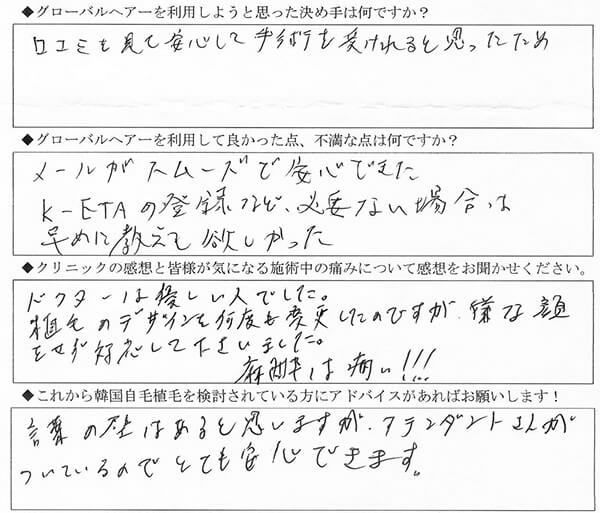 ◆グローバルヘアーを利用しようと思った決め手は何ですか？
口コミを見て安心して手術を受けれると思ったため
◆グローバルヘアーを利用して良かった点、不満な点は何ですか？
メールがスムーズで安心できた
K-ETAの登録など、必要ない場合は
早めに教えて欲しかった
◆クリニックの感想と皆様が気になる施術中の痛みについて感想をお聞かせください。
ドクターは優しい人でした。
植毛のデザインを何度も変更したのですが、嫌な顔
をせず対応して下さいました。
麻酔は痛い!!!
◆これから韓国自毛植毛を検討されている方にアドバイスがあればお願いします！
言葉の壁はあると思いますが、アテンダントさんが
ついているのでとても安心できます。